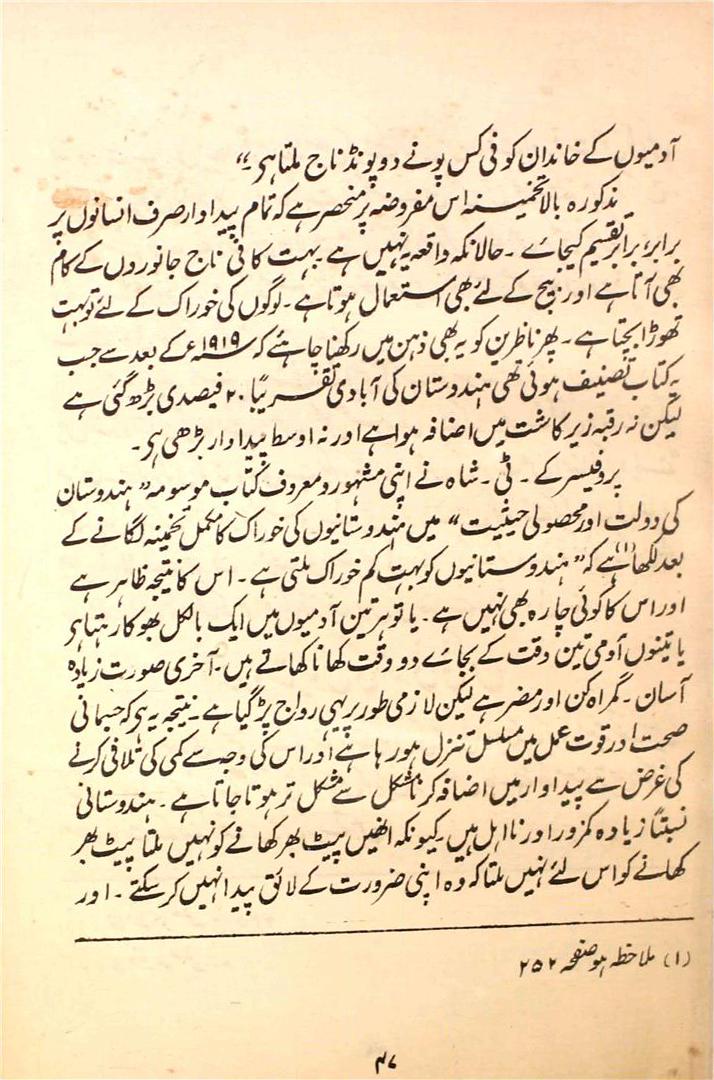 آدمیوں کے خاندان کو فی کس پونے دو پونڈ ناج ملتا ہی۔"
مذکورہ بالا تخمینہ اس مفروضہ پر منحصر ہے کہ تمام پیداوار صرف انسانوں پر
برابر برابر تقسیم کیجائے۔ حالانکہ واقعہ یہ نہیں ہے۔ بہت کافی ناج جانوروں کے کام
بھی آتا ہے اور بیج کے لئے بھی استعمال ہوتا ہے۔ لوگوں کی خوراک کے لئے تو بہت
تھوڑا بچتا ہے۔ پھر ناظرین کو یہ بھی ذہن میں رکھنا چاہئے کہ ۱۹۱۹ء کے بعد سے جب
یہ کتاب تصنیف ہوئی تھی ہندوستان کی آبادی تقریباً ۲۰ فیصدی بڑھ گئی ہے
لیکن نہ رقبہ زیر کاشت میں اضافہ ہوا ہے اور نہ اوسط پیداوار بڑھی ہی۔
پروفیسر کے۔ ٹی۔ شاہ نے اپنی مشہور و معروف کتاب موسومہ "ہندوستان
کی دولت اور محصولی حیثیت" میں ہندوستانیوں کی خوراک کا مکمل تخمینہ لگانے کے
بعد لکھا(۱) ہے کہ "ہندوستانیوں کو بہت کم خوراک ملتی ہے۔ اس کا نتیجہ ظاہر ہے
اور اس کا کوئی چارہ بھی نہیں ہے۔ یا تو ہر تین آدمیوں میں ایک بالکل بھوکا رہتا ہی
یا تینوں آدمی تین وقت کے بجائے دو وقت کھانا کھاتے ہیں۔ آخری صورت زیادہ
آسان۔ گمراہ کن اور مضر ہے لیکن لازمی طور پر یہی رواج پڑ گیا ہے۔ نتیجہ یہ ہی کہ جسمانی
صحت اور قوت عمل میں مسلسل تنزل ہو رہا ہے اور اس کی وجہ سے کمی کی تلافی کرنے
کی غرض سے پیداوار میں اضافہ کرنا مشکل سے مشکل تر ہوتا جاتا ہے۔ ہندوستانی
نسبتاً زیادہ کمزور اور نااہل ہیں۔ کیونکہ انھیں پیٹ بھر کھانے کو نہیں ملتا پیٹ بھر
کھانے کو اس لئے نہیں ملتا کہ وہ اپنی ضرورت کے لائق پیدا نہیں کر سکتے۔ اور
(۱) ملاحظہ ہو صفحہ ۲۵۲
۴۷